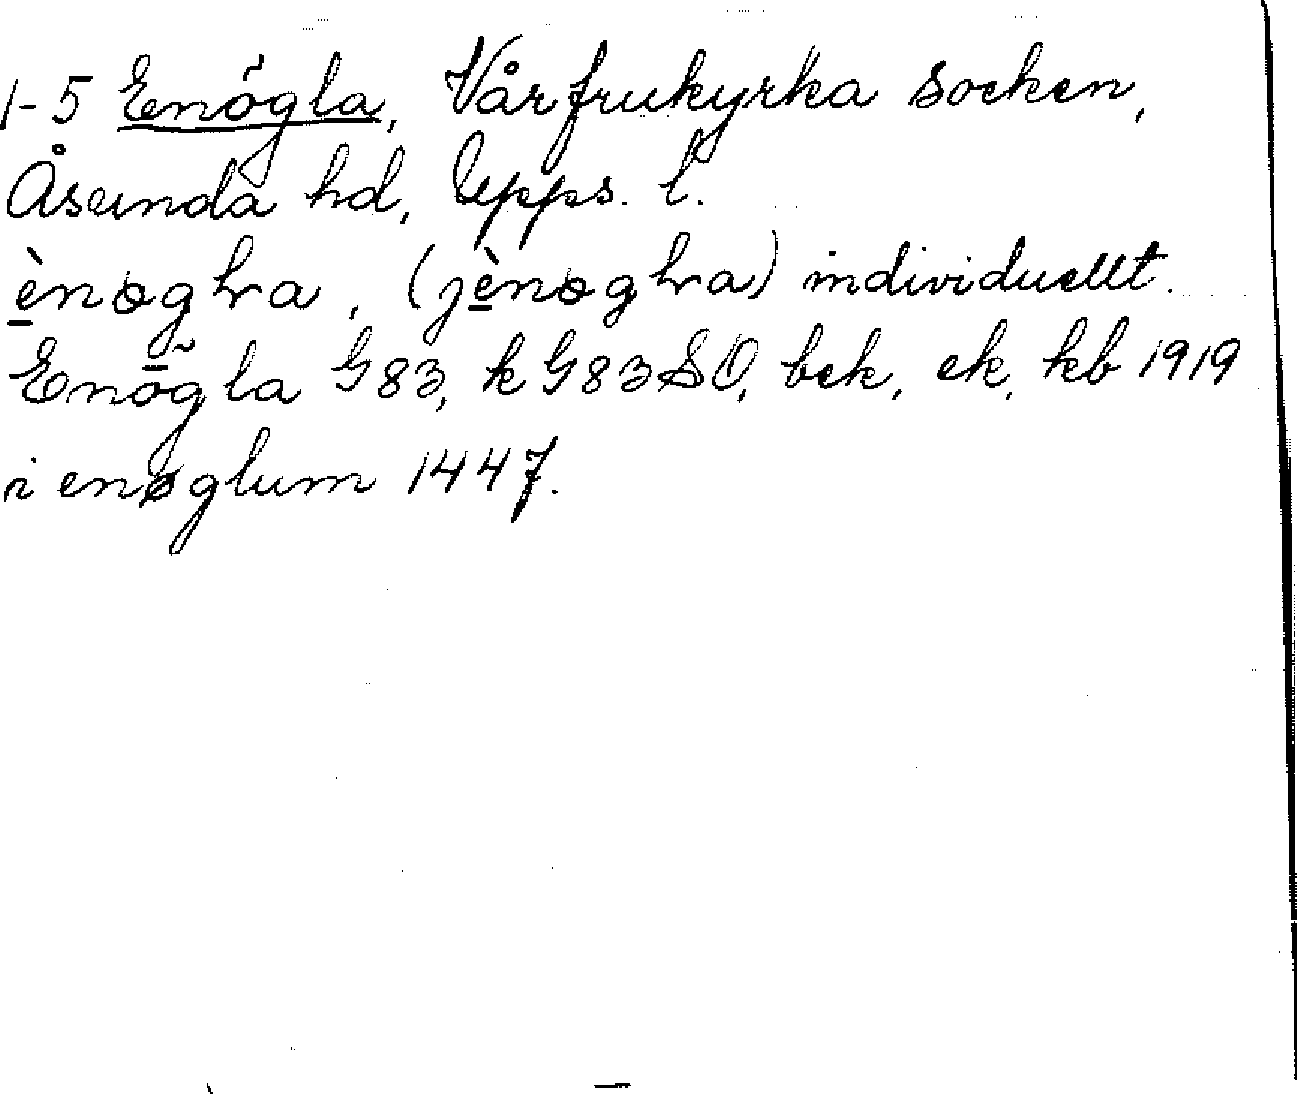 1-5 Enögla, Vårfrukyrka socken,
Åsunda hd, Upps. l.
ènøgla, (jènøgla) individuellt.
Enögla G83, k G83 SO, bek, ek, kb 1919
i enøglum 1447.